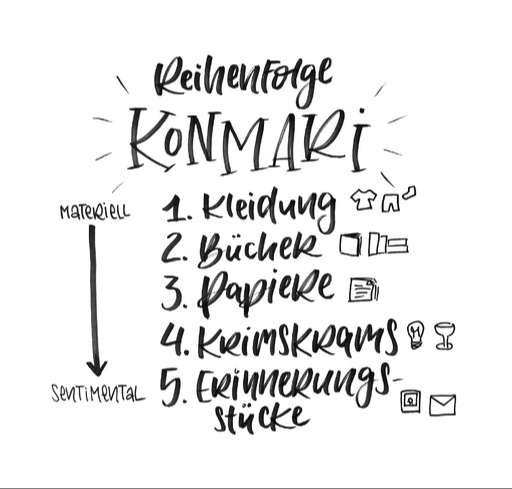 Reihenfolge
KONMARI
Materiell
1. Kleidung
2. Bücher
3. Papiere
4. Krimskrams
Sentimental
5. Erinnerungs-
stücke